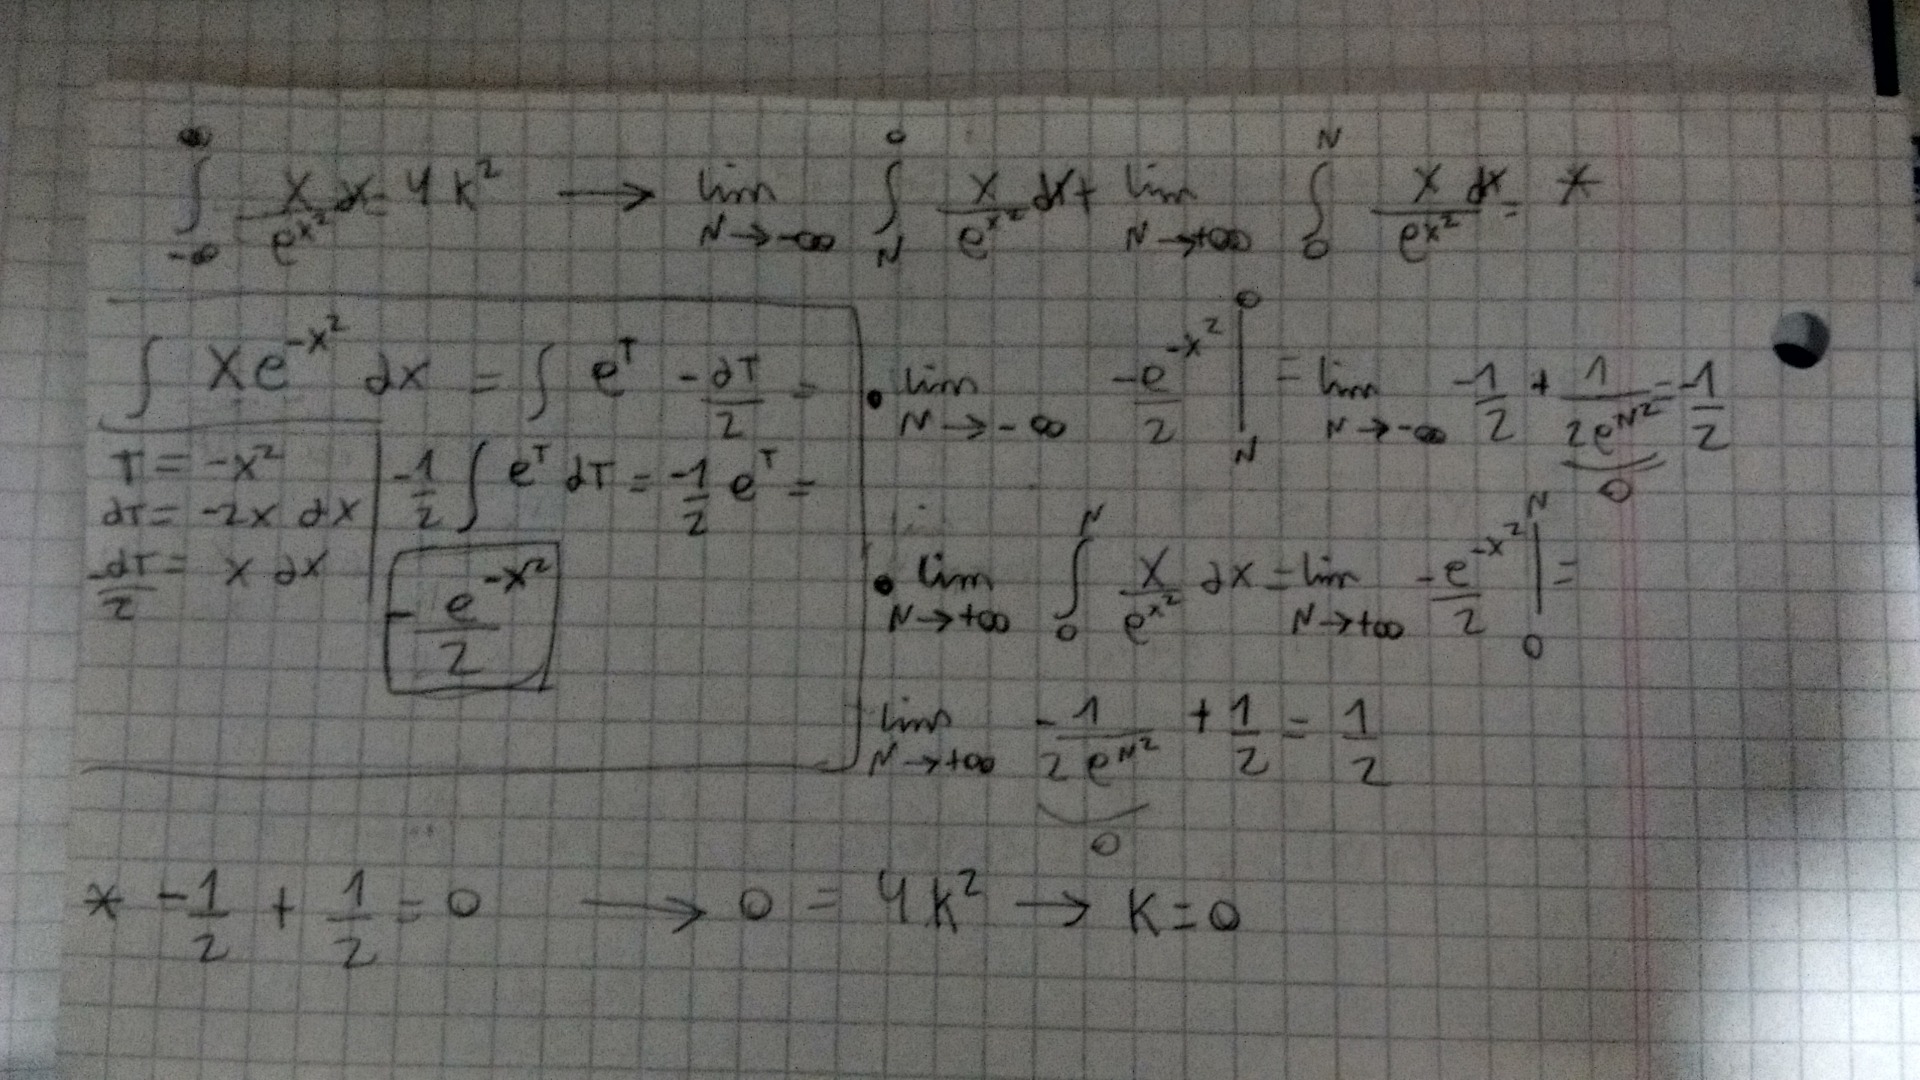 ∫_{-∞}^{∞} x/e^{x²} dx = 4k² → lim_{N→-∞} ∫_{N}^{0} x/e^{x²} dx + lim_{N→+∞} ∫_{0}^{N} x/e^{x²} dx = *
∫ xe^{-x²} dx = ∫ e^T -dT/2 =
T = -x²
dT = -2x dx
-dT/2 = x dx
-1/2 ∫ e^T dT = -1/2 e^T =
-e^{-x²}/2
• lim_{N→-∞} -e^{-x²}/2 |_{N}^{0} = lim_{N→-∞} -1/2 + 1/(2e^{N²}) = -1/2
0
• lim_{N→+∞} ∫_{0}^{N} x/e^{x²} dx = lim_{N→+∞} -e^{-x²}/2 |_{0}^{N} =
lim_{N→+∞} -1/(2e^{N²}) + 1/2 = 1/2
0
* -1/2 + 1/2 = 0 → 0 = 4k² → K = 0